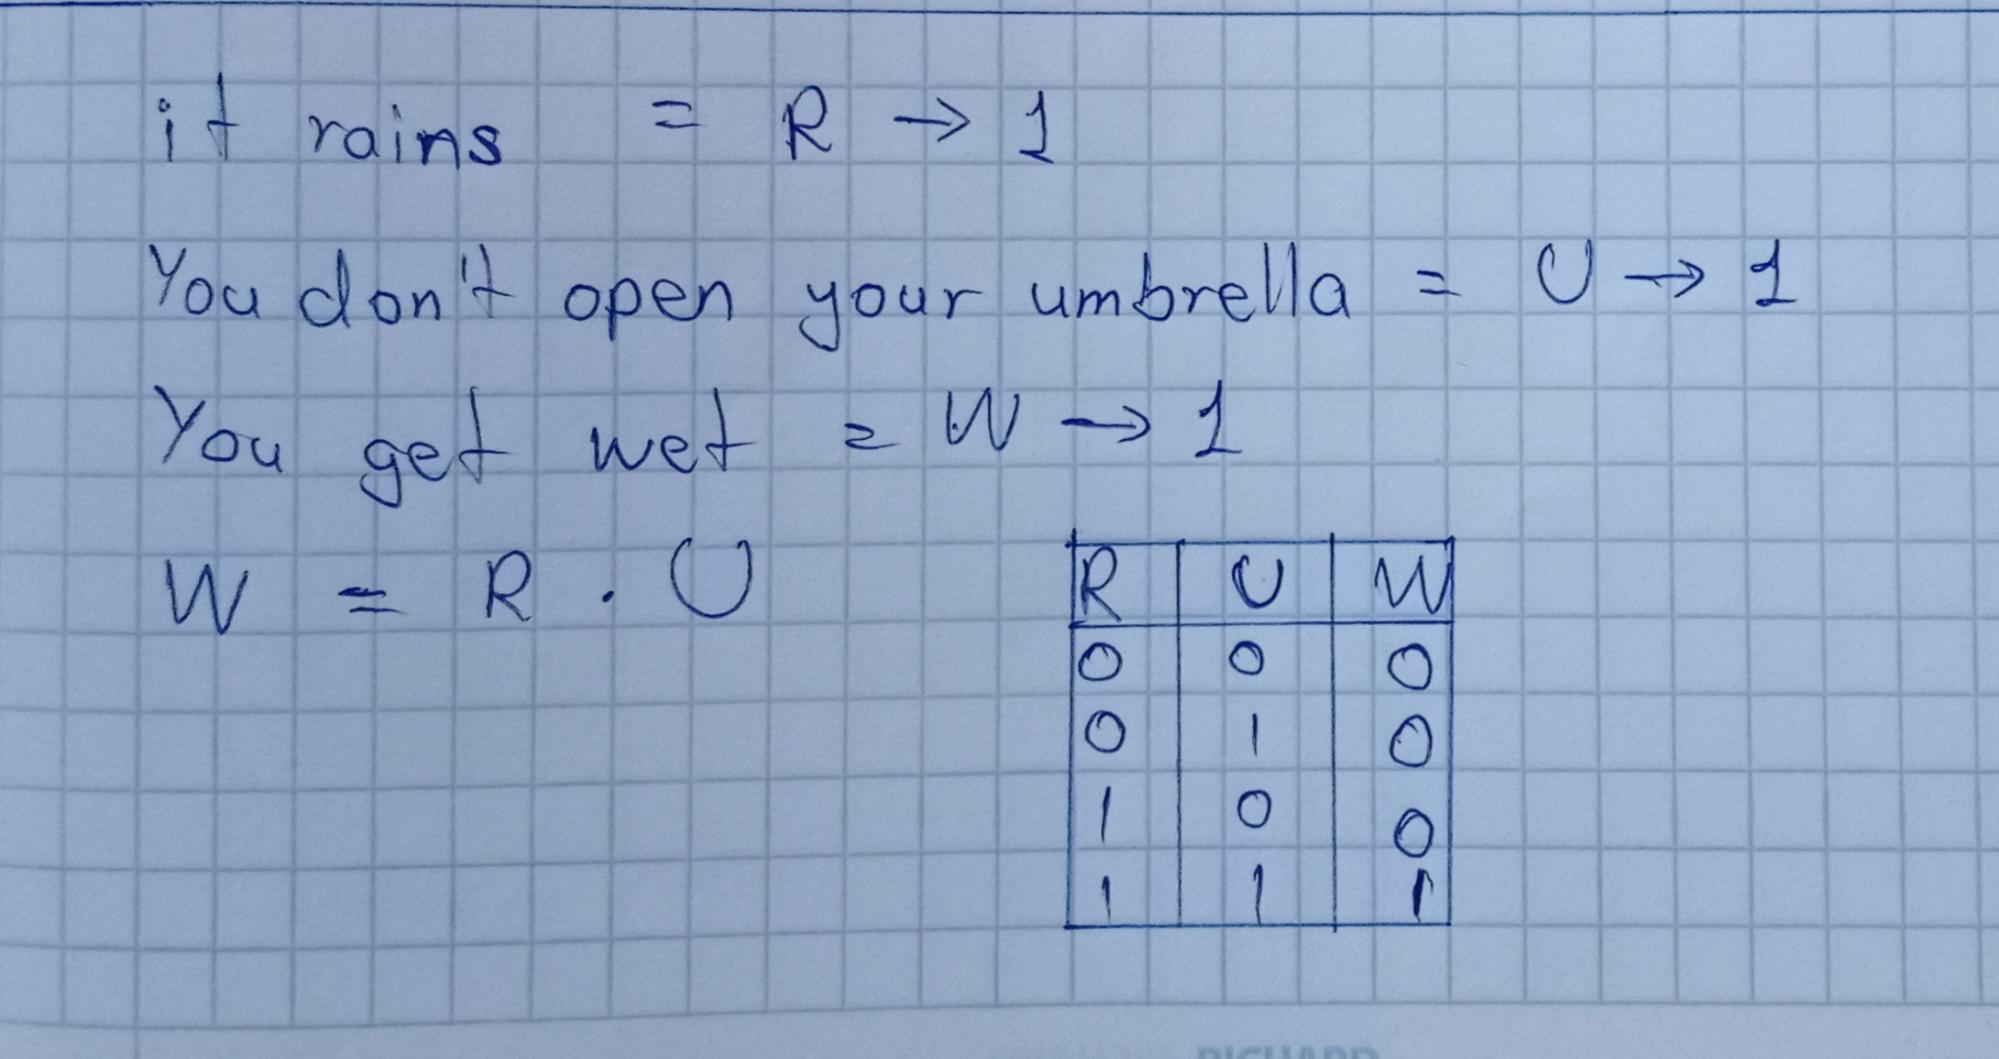 it rains = R → 1
You don't open your umbrella = U → 1
You get wet = W → 1
W = R . U
R U W
0 0 0
0 1 0
1 0 0
1 1 1
RICHARD